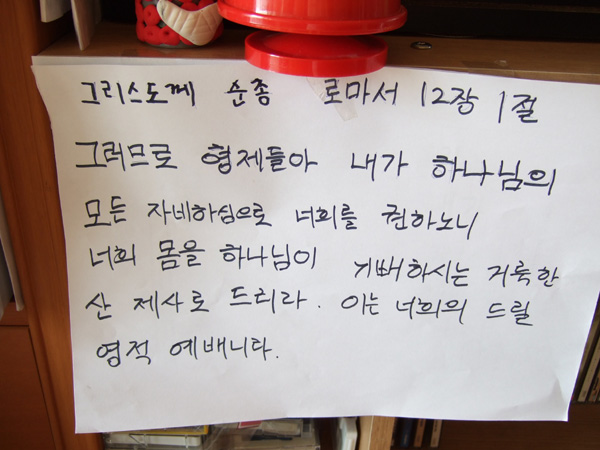 그리스도께 순종 로마서 12장 1절
그러므로 형제들아 내가 하나님의
모든 자네하심으로 너희를 권하노니
너희 몸을 하나님이 기뻐하시는 거룩한
산 제사로 드리라. 이는 너희의 드릴
영적 예배니다.